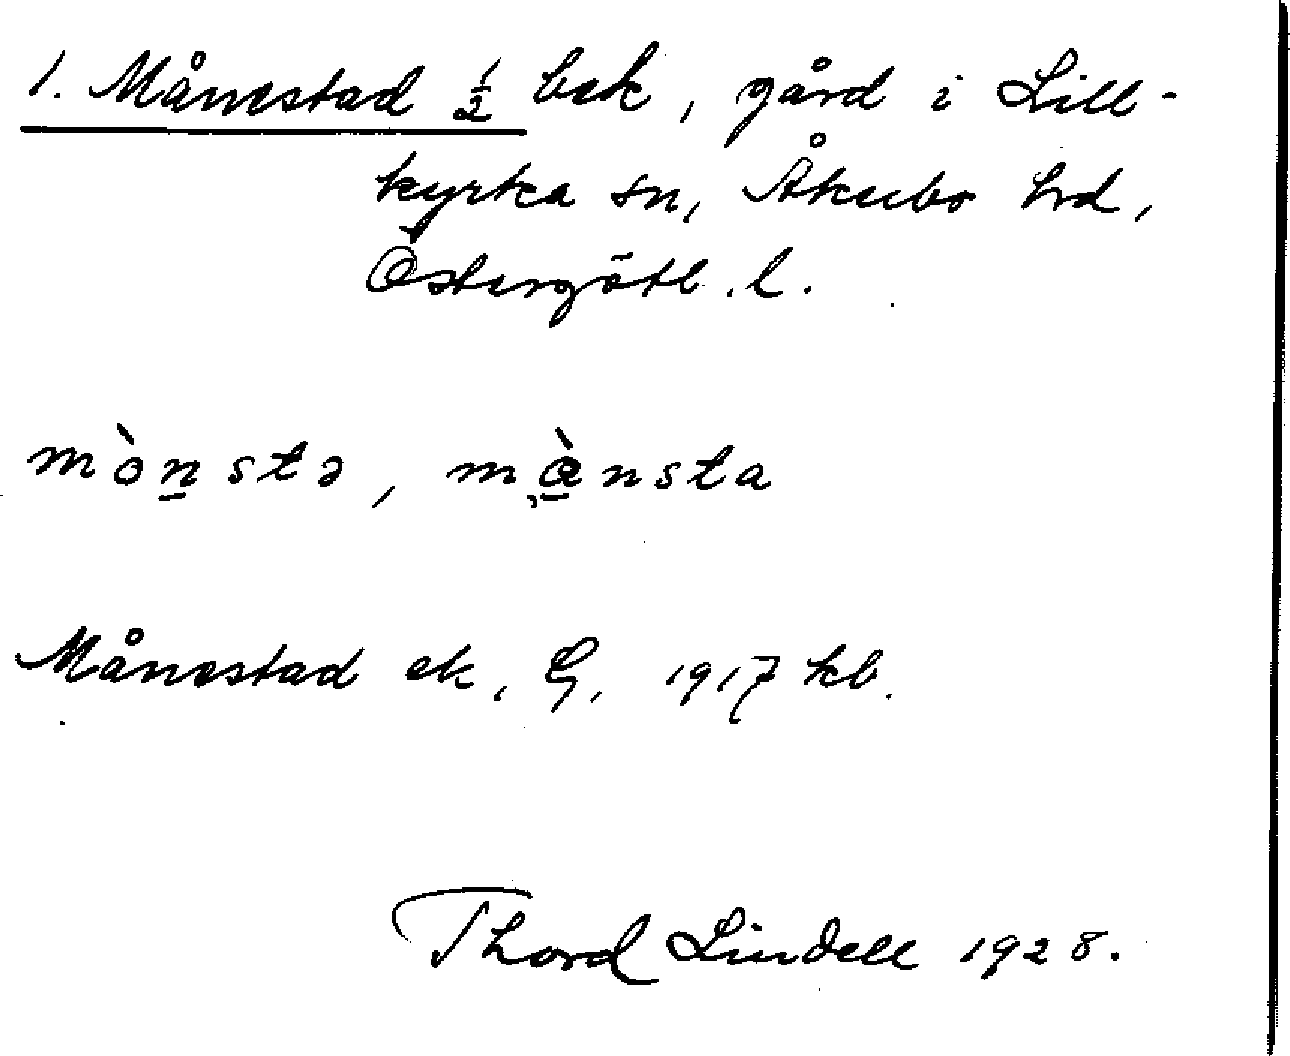 1. Månestad ½ bek, gård i Lill-
kyrka sn, Åkerbo hd,
Östergötl. l.
mònstə, mànsta
Månestad ek. G. 1917 kb.
Thord Lindell 1928.